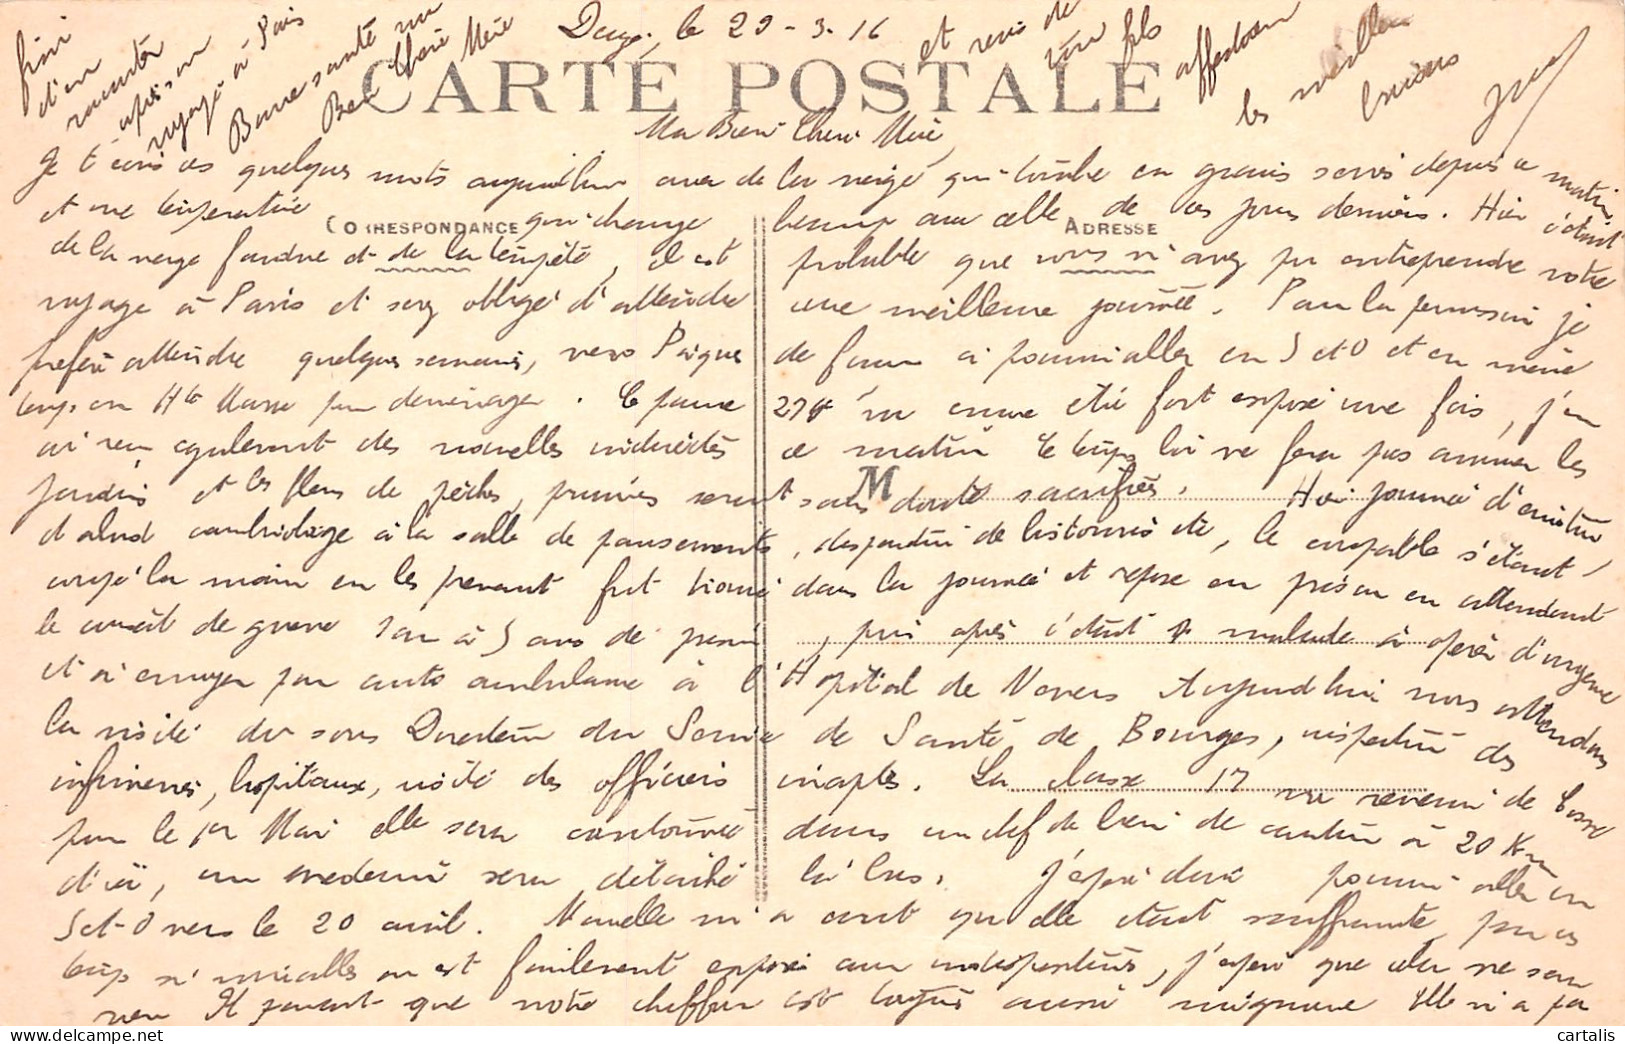 le 29-3-16
CARTE POSTALE
Ma Bien Chère Mère
Je t'écris ces quelques mots aujourd'hui avec de la neige qui tombe en grains serrés depuis ce matin
et une température qui change beaucoup avec celle de ces jours derniers. Hier c'était
CORRESPONDANCE
ADRESSE
de la neige fondue et de la tempête, il est probable que vous n'avez pu entreprendre votre
voyage à Paris et serez obligé d'attendre une meilleure journée. Pour la permission je
préfère attendre quelques semaines, vers Pâques de façon à pouvoir aller en S et O et en même
temps en Hte Marne pour déménager. Ce pauvre 27 a encore été fort exposé une fois, j'en
ai reçu également des nouvelles indirectes ce matin. Le temps lui ne fera pas avancer les
jardins et les fleurs de pêchers, pruniers seront sans doute sacrifiés. Hier journée d'émotion
M
d'abord cambriolage à la salle de pansements, disparition de bistouris etc, le coupable s'étant
coupé la main en les prenant fut trouvé dans la journée et repose en prison en attendant
le conseil de guerre 1 an à 5 ans de prison, puis après c'était 1 malade à opérer d'urgence
et à envoyer par auto ambulance à l'Hôpital de Nevers. Aujourd'hui nous attendons
la visite du sous Directeur du Service de Santé de Bourges, inspection des
infirmeries, hopitaux, visite des officiers inaptes. La classe 17 va revenir de
pour le 1er Mai elle sera cantonnée dans un chef lieu de canton à 20 Km
d'ici, un médecin sera détaché là bas. J'espère donc pouvoir aller en
S et-O vers le 20 avril. m'a écrit qu'elle était souffrante, par ces
temps ci on est facilement exposé aux indispositions, j'espère que cela ne sera
rien. Il parait que notre chauffeur est toujours aussi Elle n'a pas
fini
d'en
raconter
après son
voyage à Paris
Bonne santé ma
Bien Chère Mère
et reçois de
ton fils
affectueux
les meilleurs
baisers